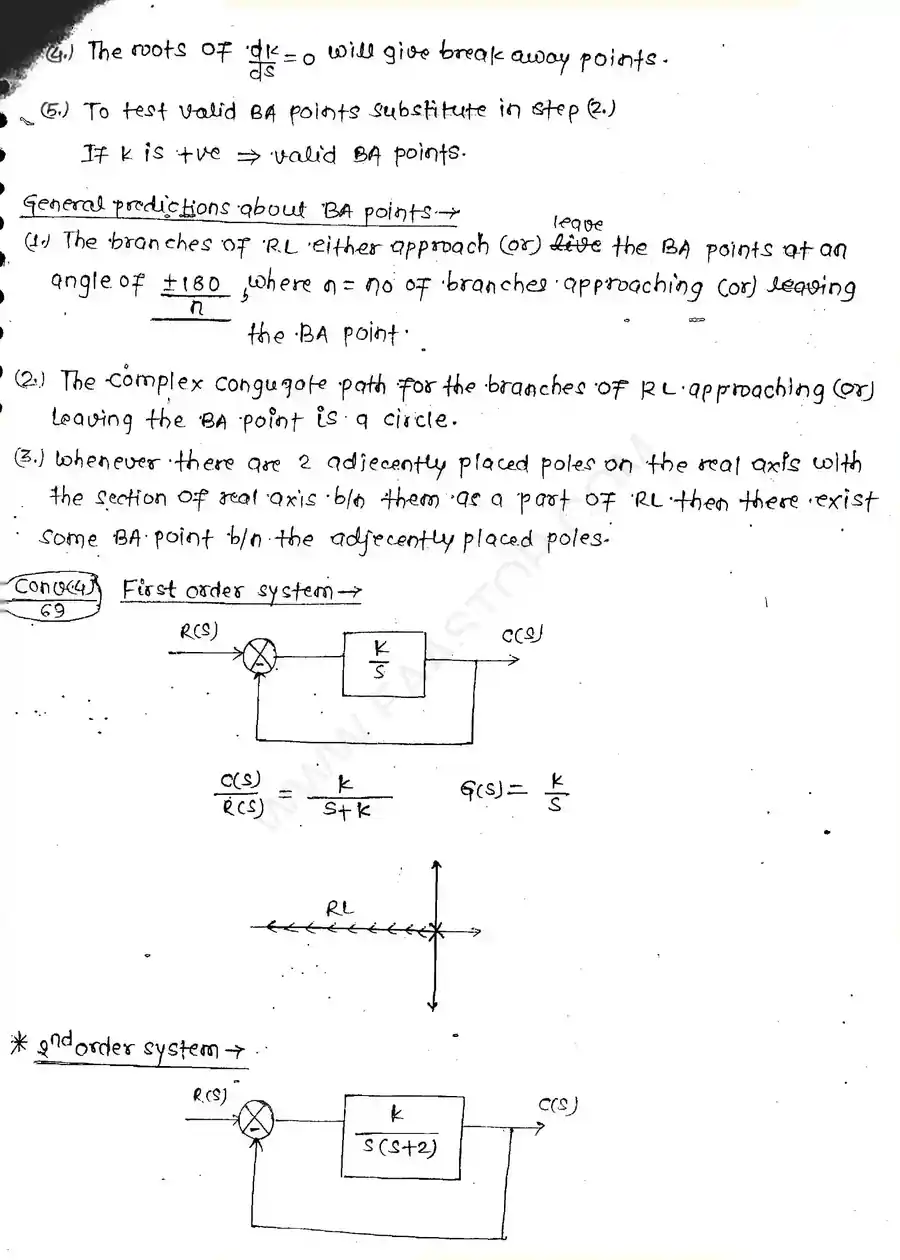 (4.) The roots of dk/ds = 0 will give break away points.
(5.) To test valid BA points substitute in step (2.)
If k is +ve ⇒ valid BA points.
General predictions about BA points →
leave
(1.) The branches of RL either approach (or) live the BA points at an
angle of ±180/n, where n = no of branches approaching (or) leaving
the BA point.
(2.) The complex congugate path for the branches of RL approaching (or)
leaving the BA point is a circle.
(3.) Whenever there are 2 adjecently placed poles on the real axis with
the section of real axis b/n them as a part of RL then there exist
some BA point b/n the adjecently placed poles.
Conv(4)/69 First order system →
R(S)
C(S)
k/s
-
C(S)/R(S) = k/(S+k) G(S) = k/s
RL
* 2nd order system →
R(S)
C(S)
k/(s(s+2))
-